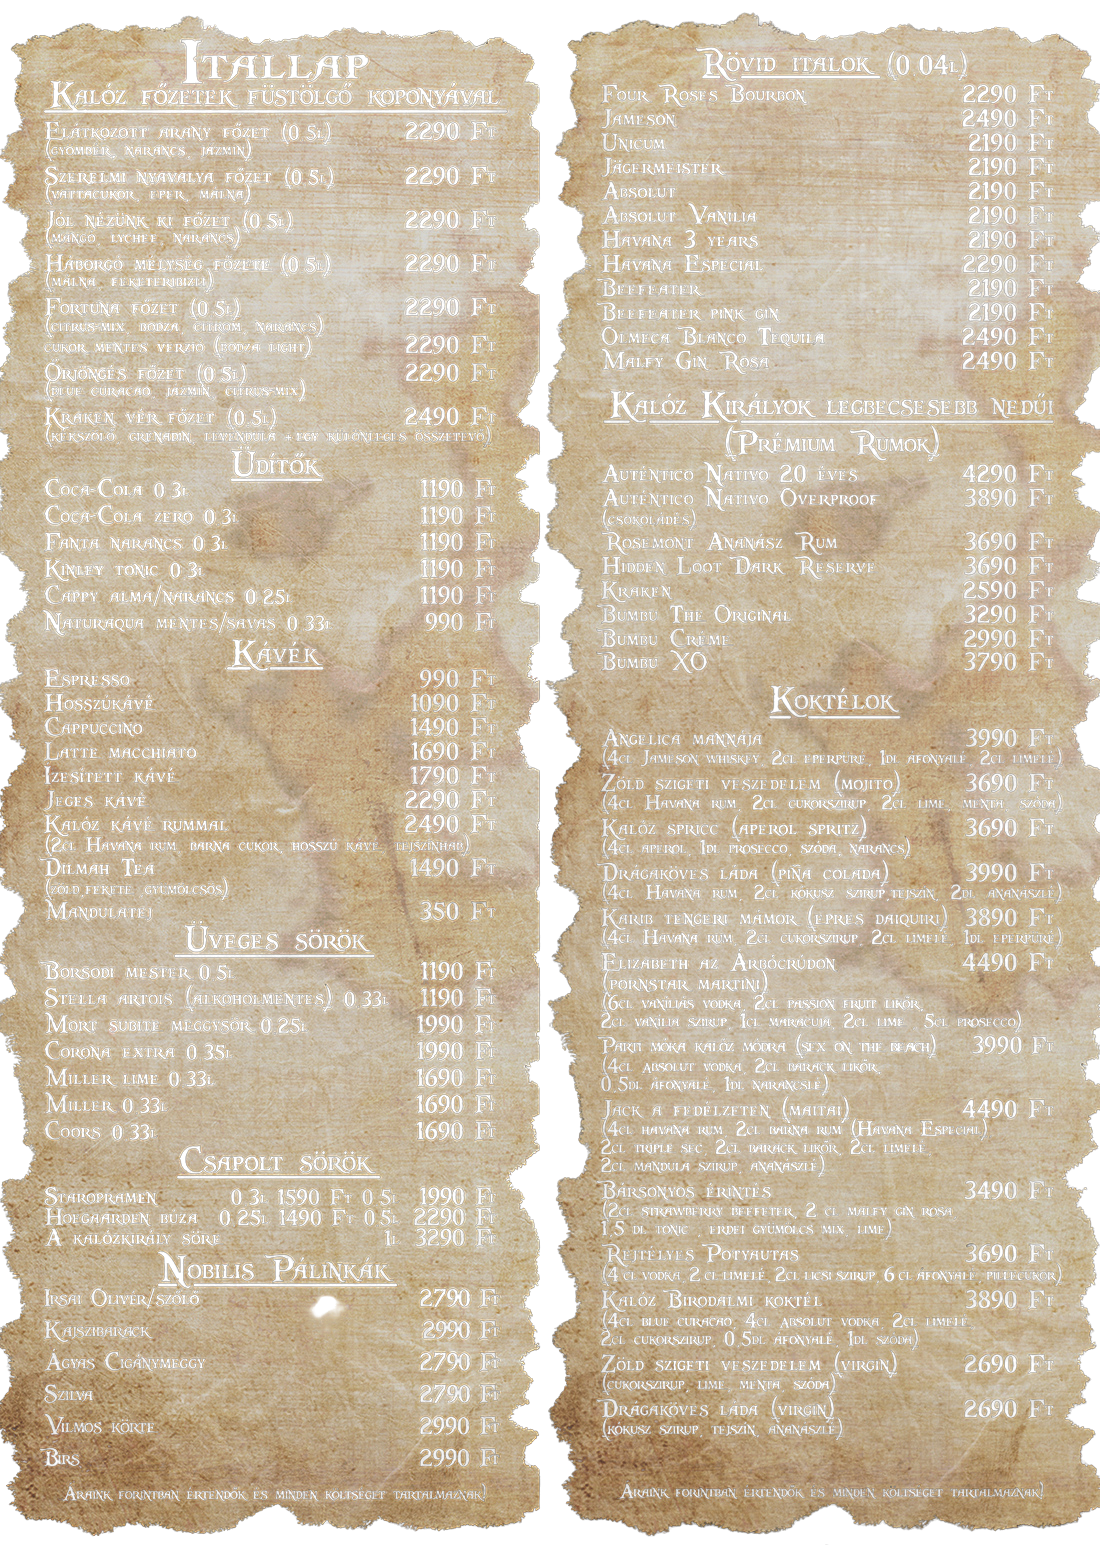 Itallap
Kalóz főzetek füstölgő koponyával
Elátkozott arany főzet (0.5l) 2290 Ft
(gyömbér, narancs, jázmin)
Szerelmi nyavalya főzet (0.5l) 2290 Ft
(vattacukor, eper, málna)
Jól nézünk ki főzet (0.5l) 2290 Ft
(mangó, lychee, narancs)
Háborgó mélység főzete (0.5l) 2290 Ft
(málna, feketeribizli)
Fortuna főzet (0.5l) 2290 Ft
(citrus-mix, bodza, citrom, narancs)
cukor mentes verzió (bodza light) 2290 Ft
Őrjöngés főzet (0.5l) 2290 Ft
(blue curacao, jázmin, citrus-mix)
Kraken vér főzet (0.5l) 2490 Ft
(kékszőlő, grenadin, levendula + egy különleges összetevő)
Üdítők
Coca-Cola 0.3l 1190 Ft
Coca-Cola zero 0.3l 1190 Ft
Fanta narancs 0.3l 1190 Ft
Kinley tonic 0.3l 1190 Ft
Cappy alma/narancs 0.25l 1190 Ft
Naturaqua mentes/savas 0.33l 990 Ft
Kávék
Espresso 990 Ft
Hosszúkávé 1090 Ft
Cappuccino 1490 Ft
Latte macchiato 1690 Ft
Ízesített kávé 1790 Ft
Jeges kávé 2290 Ft
Kalóz kávé rummal 2490 Ft
(2cl Havana rum, barna cukor, hosszú kávé, tejszínhab)
Dilmah Tea 1490 Ft
(zöld, fekete, gyümölcsös)
Mandulatej 350 Ft
Üveges sörök
Borsodi mester 0.5l 1190 Ft
Stella artois (alkoholmentes) 0.33l 1190 Ft
Mort subite meggysör 0.25l 1990 Ft
Corona extra 0.35l 1990 Ft
Miller lime 0.33l 1690 Ft
Miller 0.33l 1690 Ft
Coors 0.33l 1690 Ft
Csapolt sörök
Staropramen 0.3l 1590 Ft 0.5l 1990 Ft
Hoegaarden búza 0.25l 1490 Ft 0.5l 2290 Ft
A kalózkirály söre 1l 3290 Ft
Nobilis Pálinkák
Irsai Olivér/szőlő 2790 Ft
Kajszibarack 2990 Ft
Ágyas Cigánymeggy 2790 Ft
Szilva 2790 Ft
Vilmos körte 2990 Ft
Birs 2990 Ft
Áraink forintban értendők és minden költséget tartalmaznak!
Rövid italok (0.04l)
Four Roses Bourbon 2290 Ft
Jameson 2490 Ft
Unicum 2190 Ft
Jägermeister 2190 Ft
Absolut 2190 Ft
Absolut Vanilia 2190 Ft
Havana 3 years 2190 Ft
Havana Especial 2290 Ft
Beefeater 2190 Ft
Beefeater pink gin 2190 Ft
Olmeca Blanco Tequila 2490 Ft
Malfy Gin Rosa 2490 Ft
Kalóz Királyok legbecsesebb nedűi
(Prémium Rumok)
Auténtico Nativo 20 éves 4290 Ft
Auténtico Nativo Overproof 3890 Ft
(csokoládés)
Rosemont Ananász Rum 3690 Ft
Hidden Loot Dark Reserve 3690 Ft
Kraken 2590 Ft
Bumbu The Original 3290 Ft
Bumbu Créme 2990 Ft
Bumbu XO 3790 Ft
Koktélok
Angelica mannája 3990 Ft
(4cl Jameson whiskey, 2cl eperpüré, 1dl áfonyalé, 2cl limelé)
Zöld szigeti veszedelem (mojito) 3690 Ft
(4cl Havana rum, 2cl cukorszirup, 2cl lime, menta, szóda)
Kalóz spricc (aperol spritz) 3690 Ft
(4cl aperol, 1dl prosecco, szóda, narancs)
Drágaköves láda (piña colada) 3990 Ft
(4cl Havana rum, 2cl kókusz szirup, tejszín, 2dl ananászlé)
Karib tengeri mámor (epres daiquiri) 3890 Ft
(4cl Havana rum, 2cl cukorszirup, 2cl limelé, 1dl eperpüré)
Elizabeth az Árbócrúdon 4490 Ft
(pornstar martini)
(6cl vaniliás vodka, 2cl passion fruit likőr,
2cl vanilia szirup, 1cl maracuja, 2cl lime, 5cl prosecco)
Parti móka kalóz módra (sex on the beach) 3990 Ft
(4cl absolut vodka, 2cl barack likőr,
0.5dl áfonyalé, 1dl narancslé)
Jack a fedélzeten (maitai) 4490 Ft
(4cl havana rum, 2cl barna rum (Havana Especial)
2cl triple sec, 2cl barack likőr, 2cl limelé,
2cl mandula szirup, ananászlé)
Bársonyos érintés 3490 Ft
(2cl strawberry beefeter, 2 cl malfy gin rosa
1.5 dl tonic, erdei gyümölcs mix, lime)
Rejtélyes Potyautas 3690 Ft
(4 cl vodka, 2 cl limelé, 2cl licsi szirup, 6 cl áfonyalé, pillecukor)
Kalóz Birodalmi koktél 3890 Ft
(4cl blue curacao, 4cl absolut vodka, 2cl limelé,
2cl cukorszirup, 0.5dl áfonyalé, 1dl szóda)
Zöld szigeti veszedelem (virgin) 2690 Ft
(cukorszirup, lime, menta, szóda)
Drágaköves láda (virgin) 2690 Ft
(kókusz szirup, tejszín, ananászlé)
Áraink forintban értendők és minden költséget tartalmaznak!